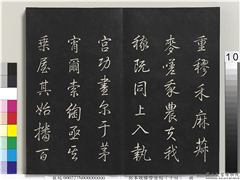 重穋禾麻菽
麥嗟我農夫我
稼既同上入執
宮功晝爾于茅
宵爾索綯亟其
乘屋其始播百
10